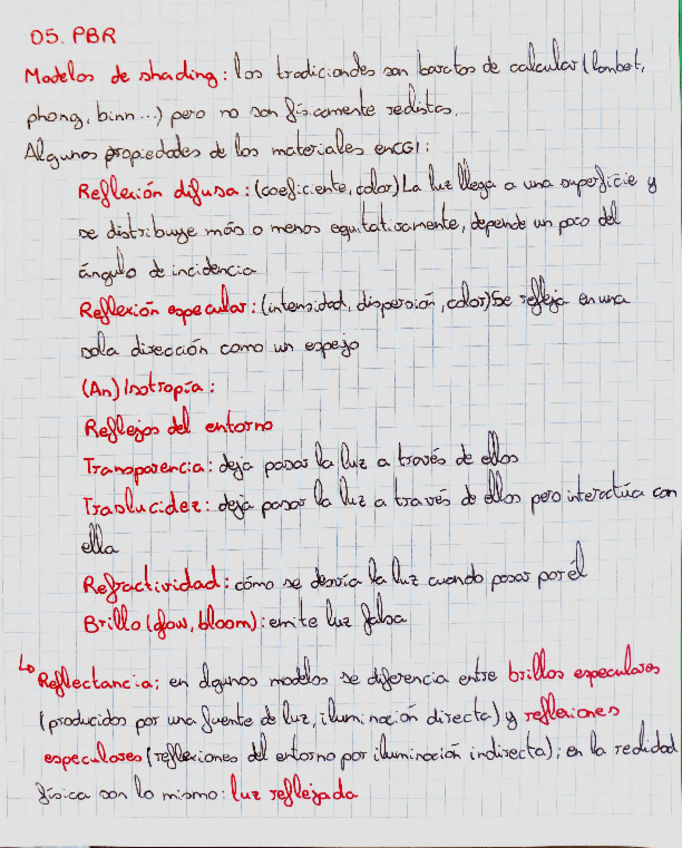 05. PBR
Modelos de shading: los tradicionales son baratos de calcular (lambert,
phong, binn...) pero no son físicamente realistas.
Algunas propiedades de los materiales en CGI:
Reflexión difusa: (coeficiente, color) La luz llega a una superficie y
se distribuye más o menos equitativamente, depende un poco del
ángulo de incidencia
Reflexión especular: (intensidad, dispersión, color) Se refleja en una
sola dirección como un espejo
(An) Isotropía:
Reflejos del entorno
Transparencia: deja pasar la luz a través de ellos
Traslucidez: deja pasar la luz a través de ellos pero interactúa con
ella
Refractividad: cómo se desvía la luz cuando pasas por él
Brillo (glow, bloom): emite luz falsa
↳ Reflectancia: en algunos modelos se diferencia entre brillos especulares
(producidos por una fuente de luz, iluminación directa) y reflexiones
especulares (reflexiones del entorno por iluminación indirecta); en la realidad
física son lo mismo: luz reflejada